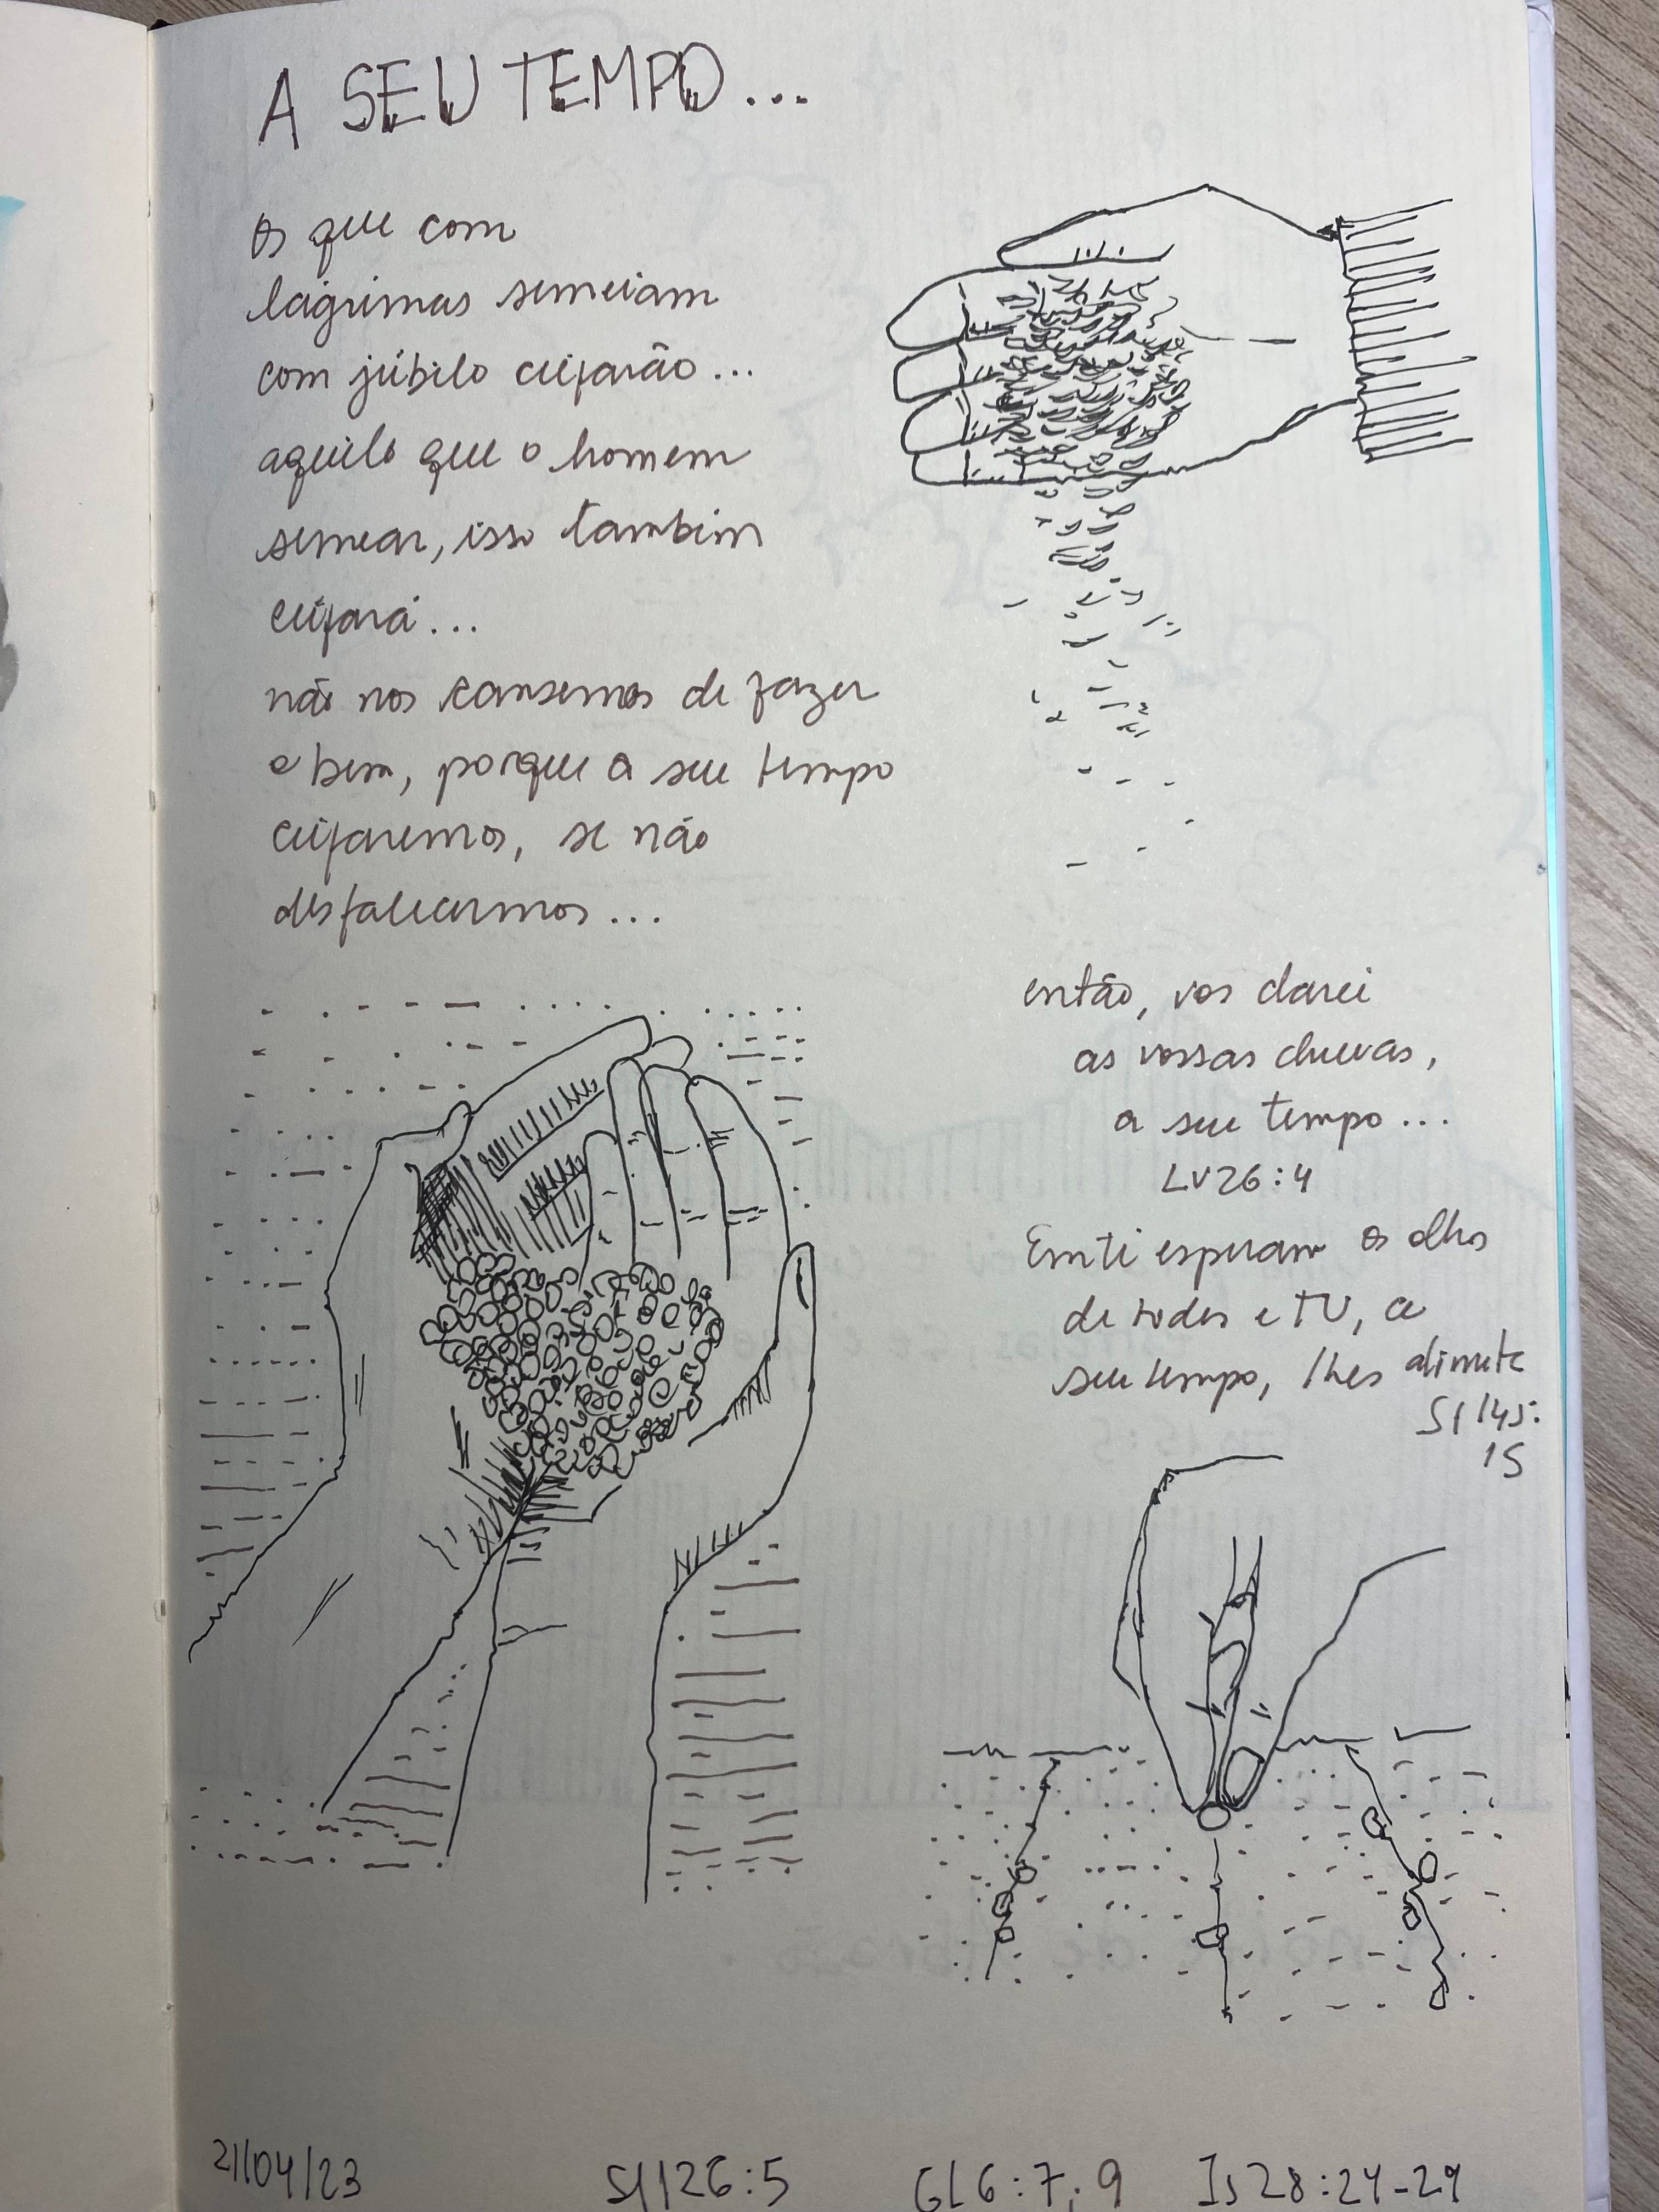 A SEU TEMPO...
os que com
lágrimas semeiam
com júbilo ceifarão...
aquilo que o homem
semear, isso também
ceifará...
não nos cansemos de fazer
o bem, porque a seu tempo
ceifaremos, se não
desfalecermos...
então, vos darei
as vossas chuvas,
a seu tempo...
LV 26:4
Em ti esperam os olhos
de todos e TU, a
seu tempo, lhes alimenta
Sl 145:
15
21/04/23 Sl 126:5 Gl 6:7,9 Is 28:24-29